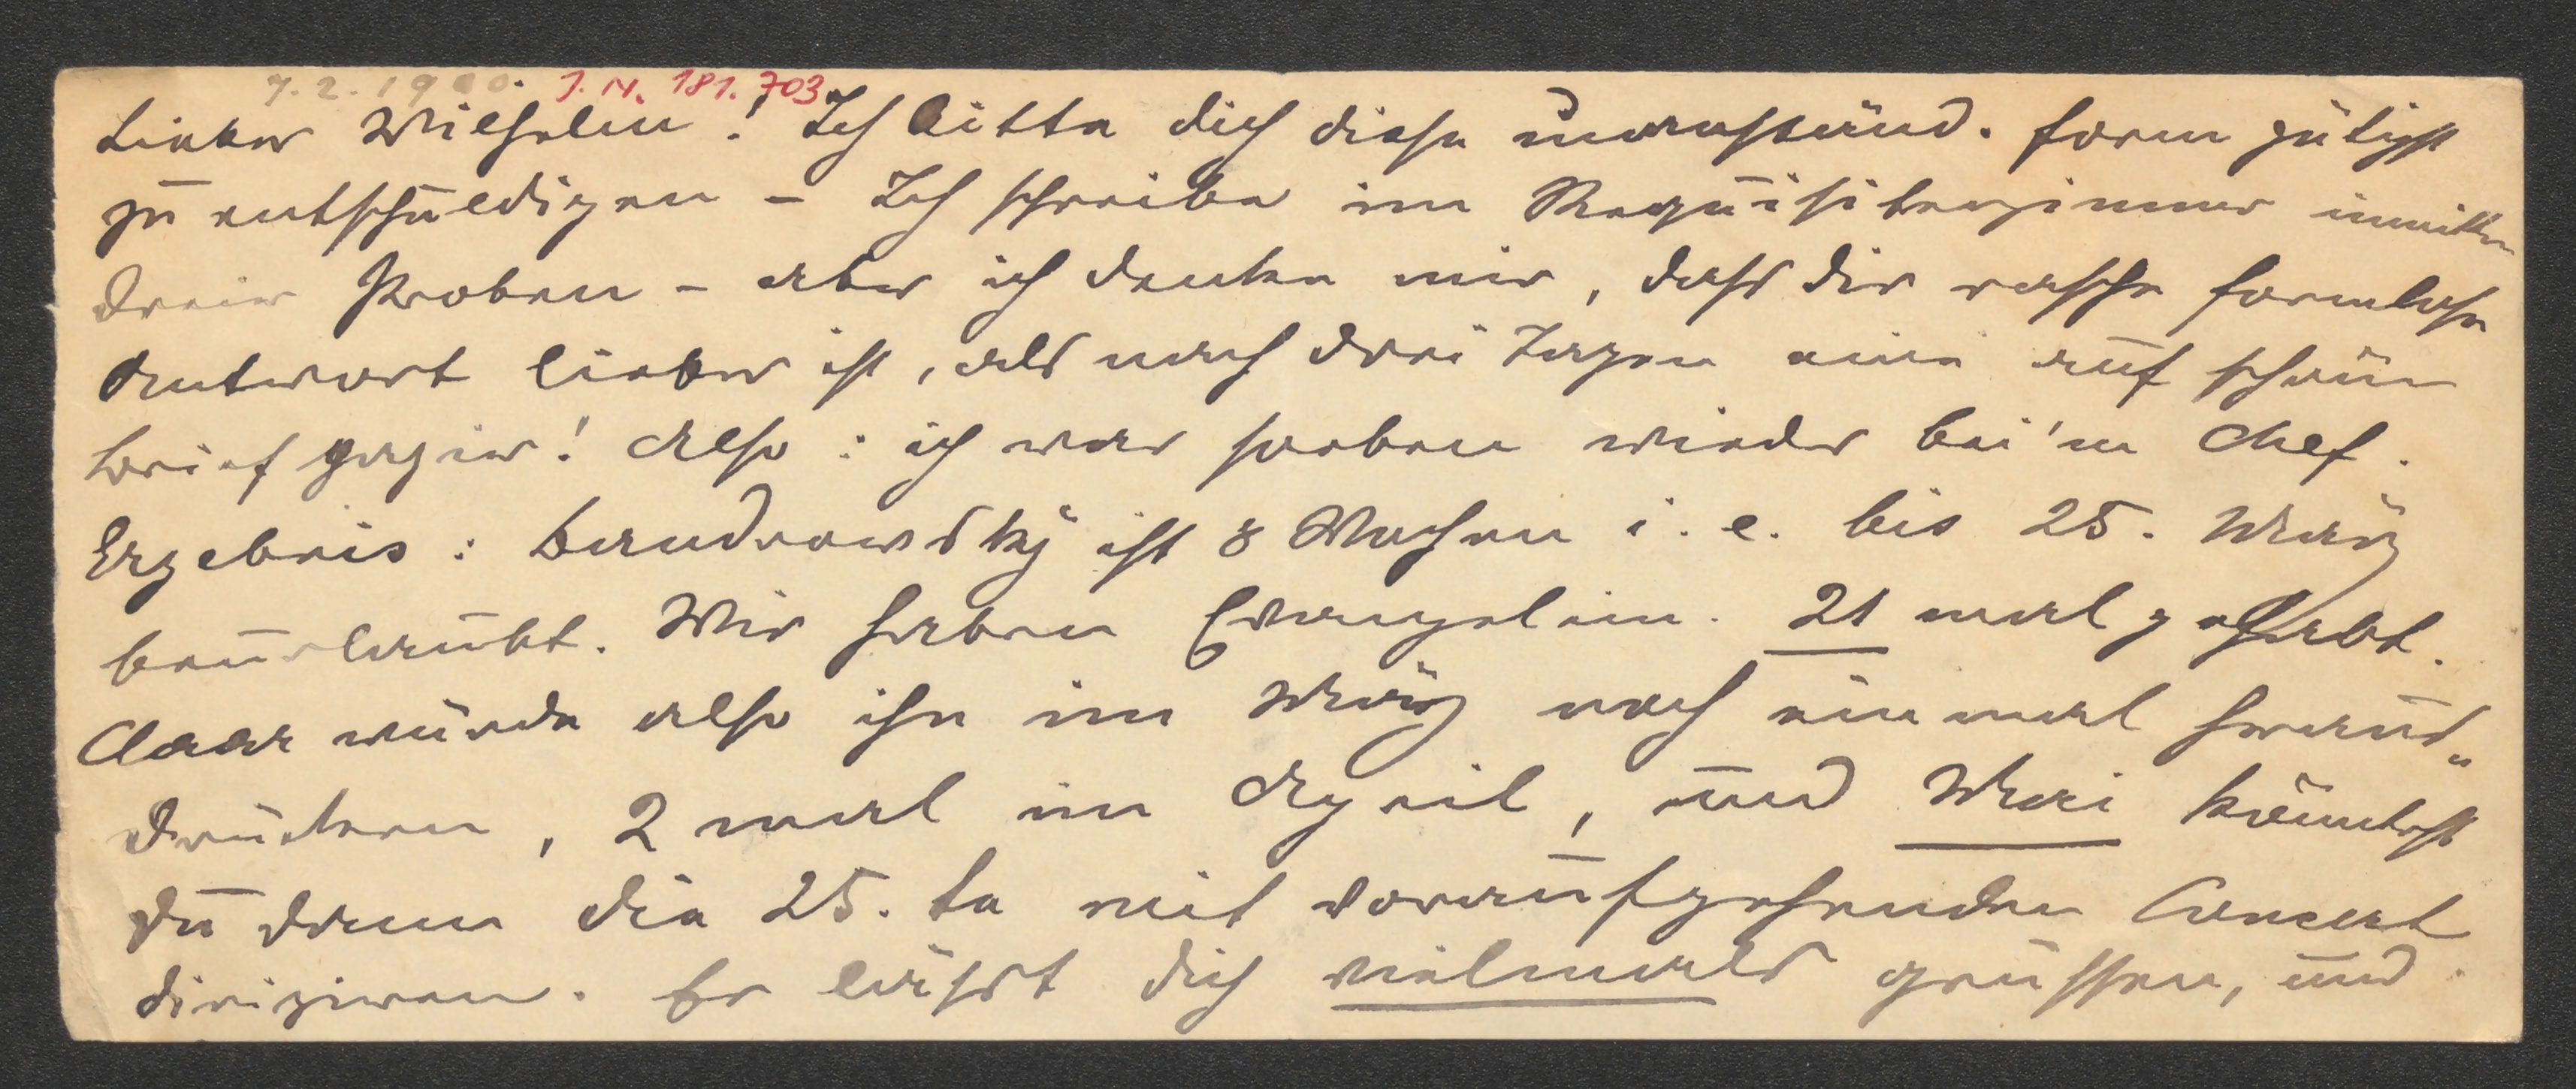 7. 2. 1900. I. N. 181.703
Lieber Wilhelm! Ich bitte dich diese unanständ. Form gütigst
zu entschuldigen – Ich schreibe im Requisitenzimmer inmitten
dreier Proben – aber ich denke mir, dass dir rasche formlose
Antwort lieber ist, als nach drei Tagen eine auf schönem
Briefpapier! Also: ich war soeben wieder bei'm Chef.
Ergebnis: Bandrowsky ist 8 Wochen i. e. bis 25. März
beurlaubt. Wir haben Evangelim. 21 mal gehabt.
Claar würde also ihn im März noch einmal heraus„
drücken, 2 mal im April, und Mai könntest
du dann die 25. te mit voraufgehenden Concert
dirigieren. Er lässt dich vielmals grüssen, und